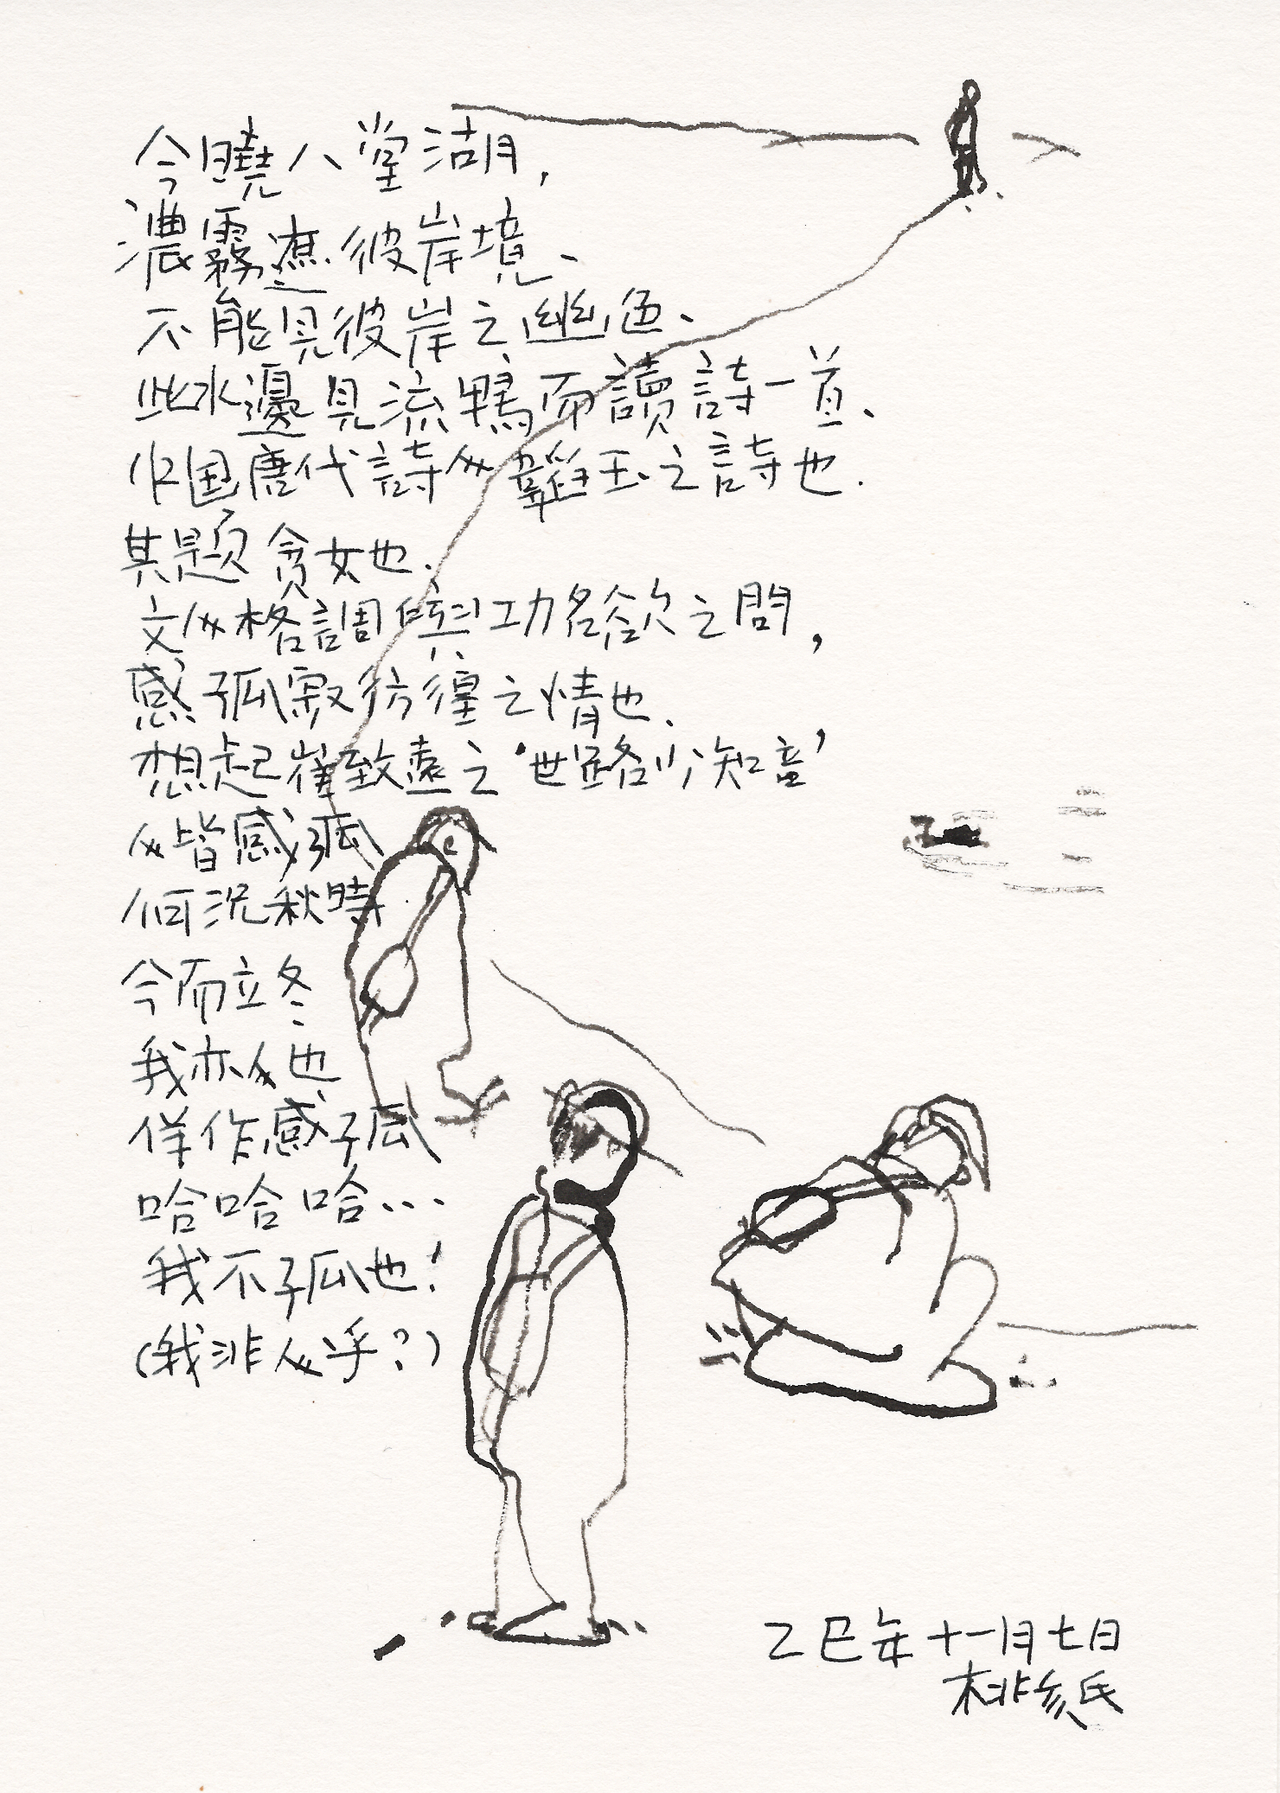 今曉八堂湖,
濃霧遮彼岸境、
不能見彼岸之幽色、
此水邊見流鴨而讀詩一首、
中国唐代詩人韜玉之詩也.
其題貪女也.
文人格調與功名欲之間,
感孤寂彷徨之情也、
想起崔致遠之'世路少知音'
人皆感孤
何況秋時
今而立冬
我亦人也
佯作感孤
哈哈哈...
我不孤也!
(我非人乎?)
乙巳年十一月七日